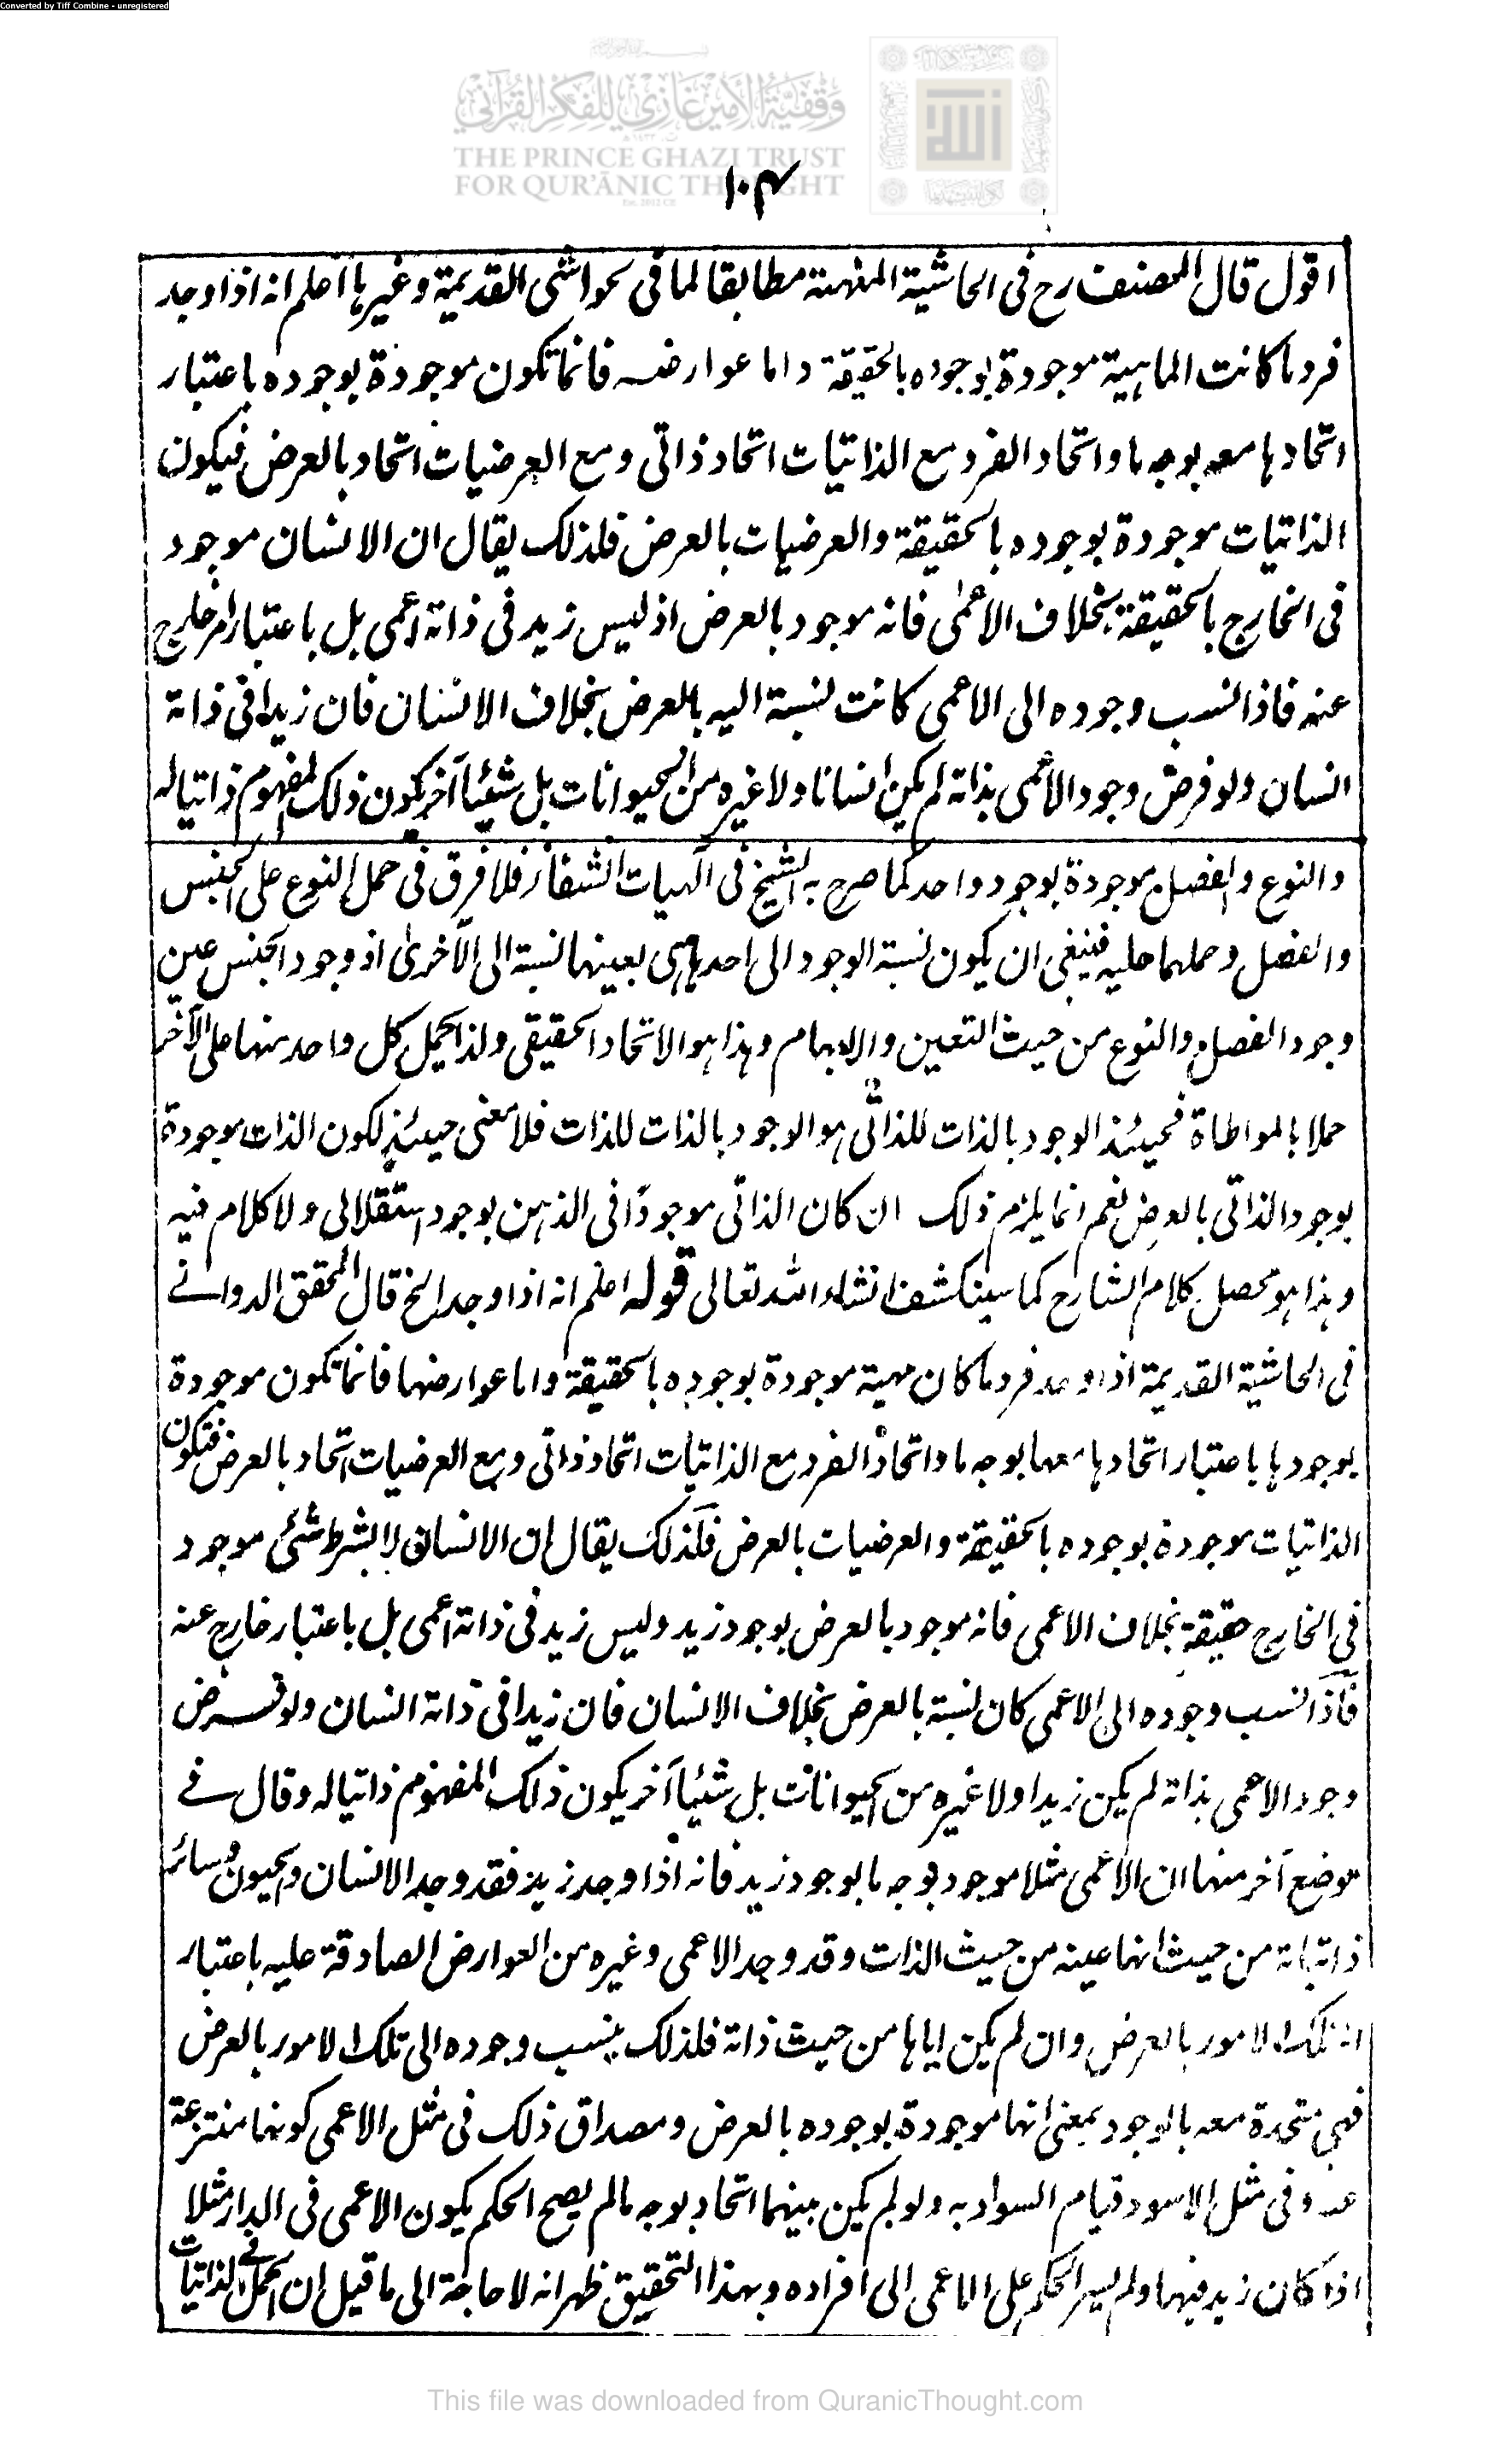 Converted by Tiff Combine - unregistered
وقفية الأمير غازي للفكر القرآني
THE PRINCE GHAZI TRUST
FOR QUR'ĀNIC THOUGHT
١٠٤
اقول قال المصنف رح فى الحاشية المنهية مطابقا لما فى الحواشى القديمة وغيرها اعلم انه اذا وجد
فرد ما كانت الماهية موجودة بوجوده بالحقيقة واما عوارضه فانما تكون موجودة بوجوده باعتبار
اتحادها معه بوجه ما واتحاد الفرد مع الذاتيات اتحاد ذاتى ومع العرضيات اتحاد بالعرض فيكون
الذاتيات موجودة بوجوده بالحقيقة والعرضيات بالعرض فلذلك يقال ان الانسان موجود
فى الخارج بالحقيقة بخلاف الاعمى فانه موجود بالعرض اذ ليس زيد فى ذاته اعمى بل باعتبار امر خارج
عنه فاذا نسب وجوده الى الاعمى كانت نسبة اليه بالعرض بخلاف الانسان فان زيدا فى ذاته
انسان ولو فرض وجود الاعمى بذاته لم يكن انسانا ولا غيره من الحيوانات بل شيئا آخر يكون ذلك المفهوم ذاتيا له
والنوع والفصل موجودة بوجود واحد كما صرح به الشيخ فى الهيات الشفاء فلا فرق فى حمل النوع على الجنس
والفصل وحملهما عليه فينبغى ان يكون نسبة الوجود الى احدهما هى بعينها نسبة الى الاخرى اذ وجود الجنس عين
وجود الفصل والنوع من حيث التعين والابهام وهذا هو الاتحاد الحقيقى ولذا يحمل كل واحد منها على الآخر
حملا بالمواطاة فحينئذ الوجود بالذات للذاتى هو الوجود بالذات للذات فلا معنى حينئذ لكون الذات موجودة
بوجود الذاتى بالعرض نعم انما يلزم ذلك ان كان الذاتى موجودا فى الذهن بوجود استقلالى ولا كلام فيه
وهذا هو محصل كلام الشارح كما سينكشف انشاء الله تعالى قوله اعلم انه اذا وجد الخ قال المحقق الدوانے
فى الحاشية القديمة اذا وجد فرد ما كان مهية موجودة بوجوده بالحقيقة واما عوارضها فانما تكون موجودة
بوجودها باعتبار اتحادها معها بوجه ما واتحاد الفرد مع الذاتيات اتحاد ذاتى ومع العرضيات اتحاد بالعرض فتكون
الذاتيات موجودة بوجوده بالحقيقة والعرضيات بالعرض فلذلك يقال ان الانسان لا بشرط شئ موجود
فى الخارج حقيقة بخلاف الاعمى فانه موجود بالعرض بوجود زيد وليس زيد فى ذاته اعمى بل باعتبار خارج عنه
فاذا نسب وجوده الى الاعمى كان نسبة بالعرض بخلاف الانسان فان زيدا فى ذاته انسان ولو فرض
وجود الاعمى بذاته لم يكن زيدا ولا غيره من الحيوانات بل شيئا آخر يكون ذلك المفهوم ذاتيا له وقال فے
موضع آخر منها ان الاعمى مثلا موجود بوجه ما بوجود زيد فانه اذا وجد زيد فقد وجد الانسان والحيوان وسائر
ذاتياته من حيث انها عينه من حيث الذات وقد وجد الاعمى وغيره من العوارض الصادقة عليه باعتبار
انه تلك الامور بالعرض وان لم يكن اياها من حيث ذاته فلذلك ينسب وجوده الى تلك الامور بالعرض
فهى متحدة معه بالوجود بمعنى انها موجودة بوجوده بالعرض ومصداق ذلك فى مثل الاعمى كونها منتزعة
عنه وفى مثل الاسود قيام السواد به ولو لم يكن بينهما اتحاد بوجه ما لم يصح الحكم بكون الاعمى فى الدار مثلا
اذا كان زيد فيها ولم يسر الحكم على الاعمى الى افراده وبهذا التحقيق ظهر انه لا حاجة الى ما قيل ان الحمل فے الذاتيات
This file was downloaded from QuranicThought.com